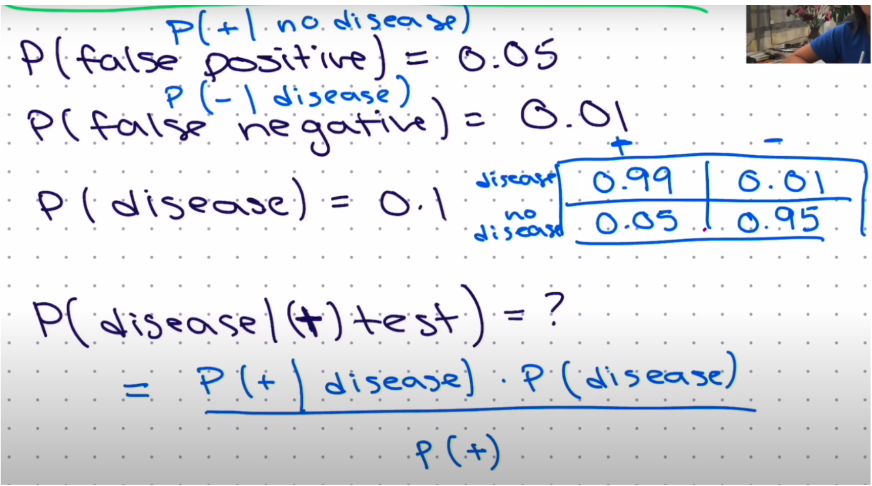 P(+| no disease)
P(false positive) = 0.05
P(-| disease)
P(false negative) = 0.01
+ -
P(disease) = 0.1
disease 0.99 0.01
no disease 0.05 0.95
P(disease|(+) test) = ?
= P(+| disease) · P(disease)
P(+)